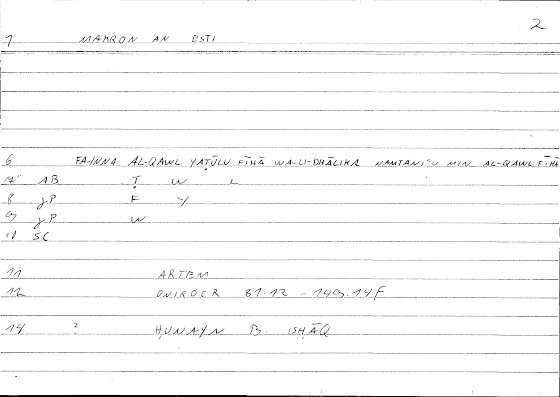 2
1 MAKRON AN ESTI
6 FA-INNA AL-QAWL YAṬŪLU FĪHĀ WA-LI-DHĀLIKA NAMTANIʿU MIN AL-QAWL FĪHĀ
7 AB Ṭ W L
8 gP F Y
9 gP W
10 SC
11 ARTEM
12 ONIROCR 81.12 - 149.14F
14 ? ḤUNAYN B. ISḤĀQ